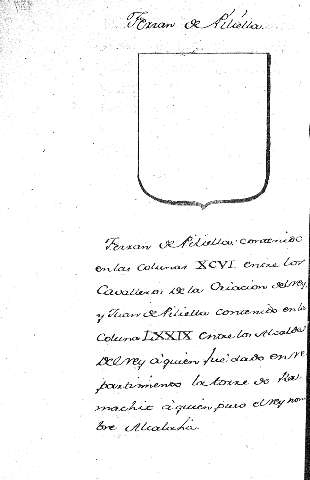 Ferran de Piliella
Ferran de Piliella contenido
en las colunas XCVI entre los
Cavalleros de la Criacion del rey
y Juan de Piliella contenido en la
coluna LXXIX entre los Alcaldes
del rey à quien fue dado en re
partimiento la torre de
machit à quien puso el rey nom
bre Alcalahi.